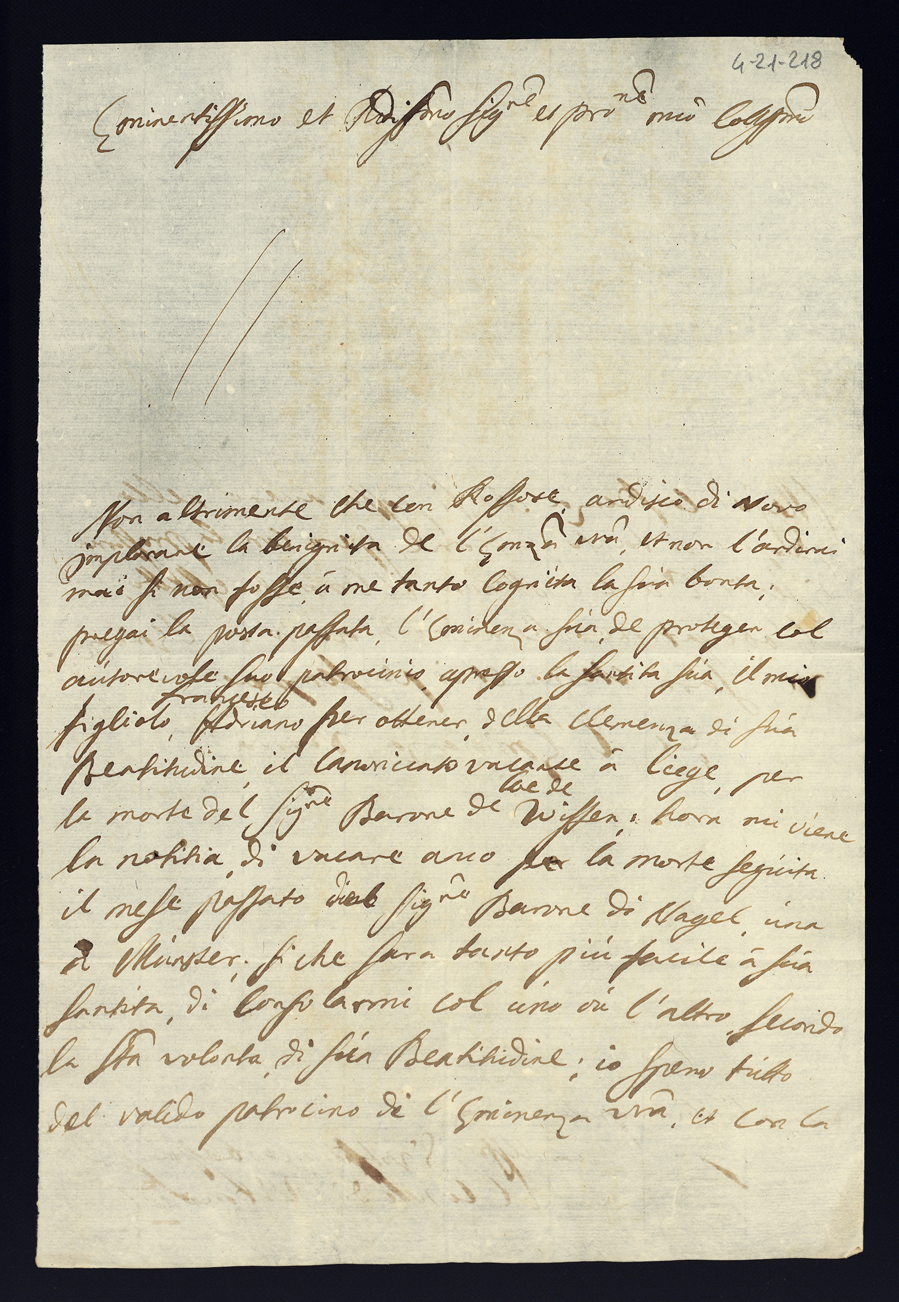 4-21-218
Eminentissimo et Rdissimo Sigre et prone mio Collssmo
Non altrimente che con Rossore, ardisco di novo
implorare la benignita de l'Emza vra, et non l'ardirei
mai si non fosse, à me tanto cognita la sua bonta,
pregai la posta passata, l'Eminenza sua, de proteger col
autorevole suo patrocinio, apresso la santita sua, il mio
figliolo, Adriano per ottener, della clemenza di sua
francesco
Beatitudine, il canonicato vacante à Liege, per
la morte del Sigre Barone de Wissen; hora mi viene
Loe de
la notitia, di vacare anco per la morte seguita
il mese passato del Sigre Barone di Nagel, una
a Münster, si che sara tanto più facile à sua
santita, di consolarmi col uno ou l'altro, secondo
la sta volonta, di sua Beatitudine; io spero tutto
del valido patrocinio di l'Eminenza vra, et con la